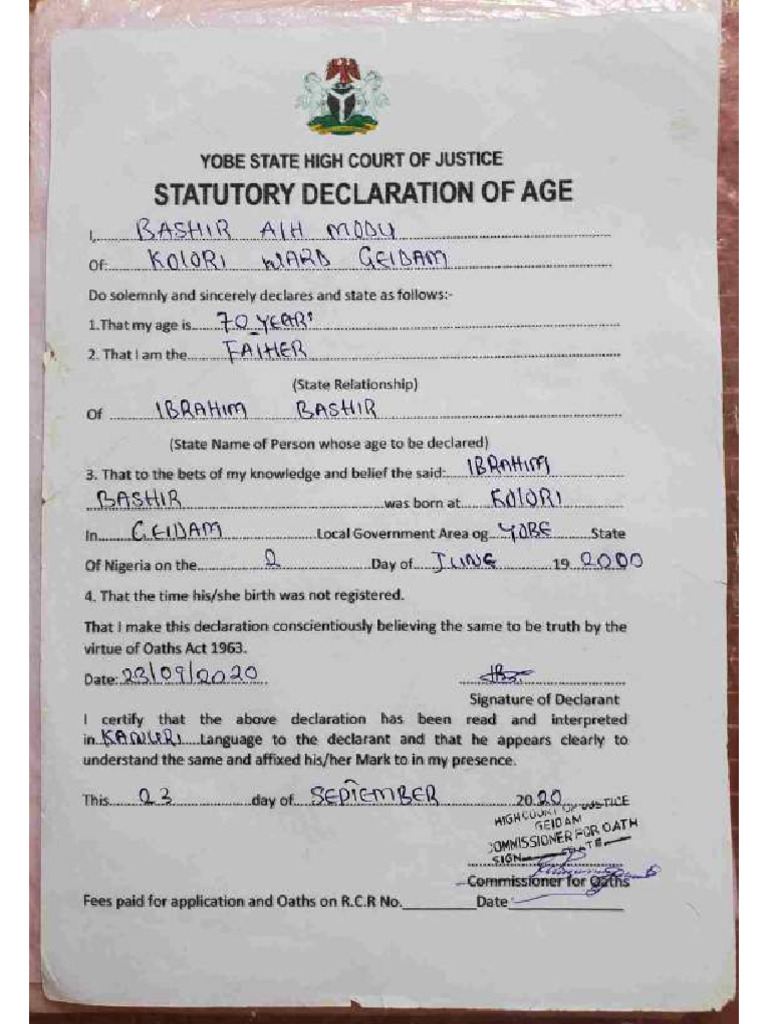 YOBE STATE HIGH COURT OF JUSTICE
STATUTORY DECLARATION OF AGE
I, BASHIR A/H MODU
Of: KOLORI WARD GEIDAM
Do solemnly and sincerely declares and state as follows:-
1.That my age is 70 YEARS
2. That I am the FATHER
(State Relationship)
Of IBRAHIM BASHIR
(State Name of Person whose age to be declared)
3. That to the bets of my knowledge and belief the said: IBRAHIM
BASHIR was born at KOLORI
In GEIDAM Local Government Area og YOBE State
Of Nigeria on the 2 Day of JUNE 19 2000
4. That the time his/she birth was not registered.
That I make this declaration conscientiously believing the same to be truth by the
virtue of Oaths Act 1963.
Date: 23/09/2020
Signature of Declarant
I certify that the above declaration has been read and interpreted
in KANURI Language to the declarant and that he appears clearly to
understand the same and affixed his/her Mark to in my presence.
This 23 day of SEPTEMBER 2020
HIGH COURT OF JUSTICE
GEIDAM
COMMISSIONER FOR OATH
SIGN DATE
Commissioner for Oaths
Fees paid for application and Oaths on R.C.R No. Date